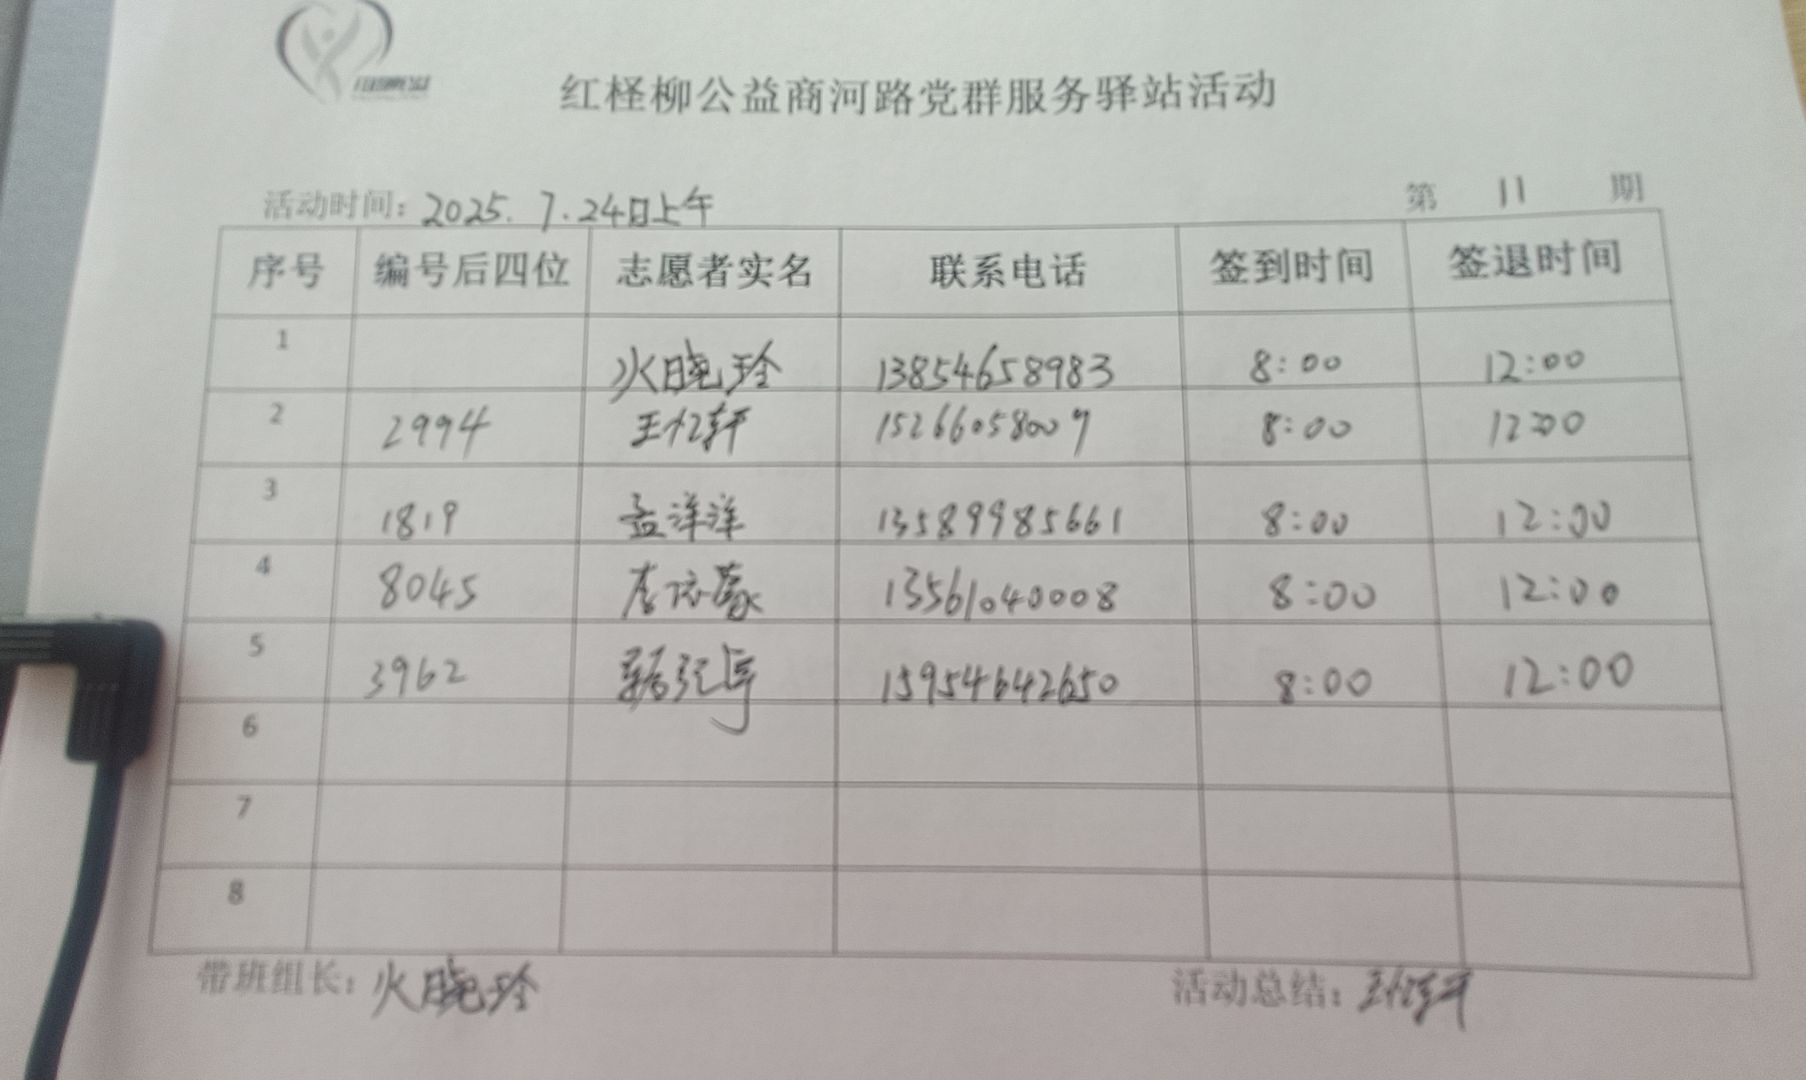 红柽柳公益商河路党群服务驿站活动
活动时间: 2025. 7. 24日上午 第 11 期
序号 编号后四位 志愿者实名 联系电话 签到时间 签退时间
1 火晓玲 13854658983 8:00 12:00
2 2994 王忆轩 15266058007 8:00 12:00
3 1819 孟洋洋 13589985661 8:00 12:00
4 8045 李依蒙 13561040008 8:00 12:00
5 3962 15954642650 8:00 12:00
6
7
8
带班组长: 火晓玲 活动总结: 王忆轩